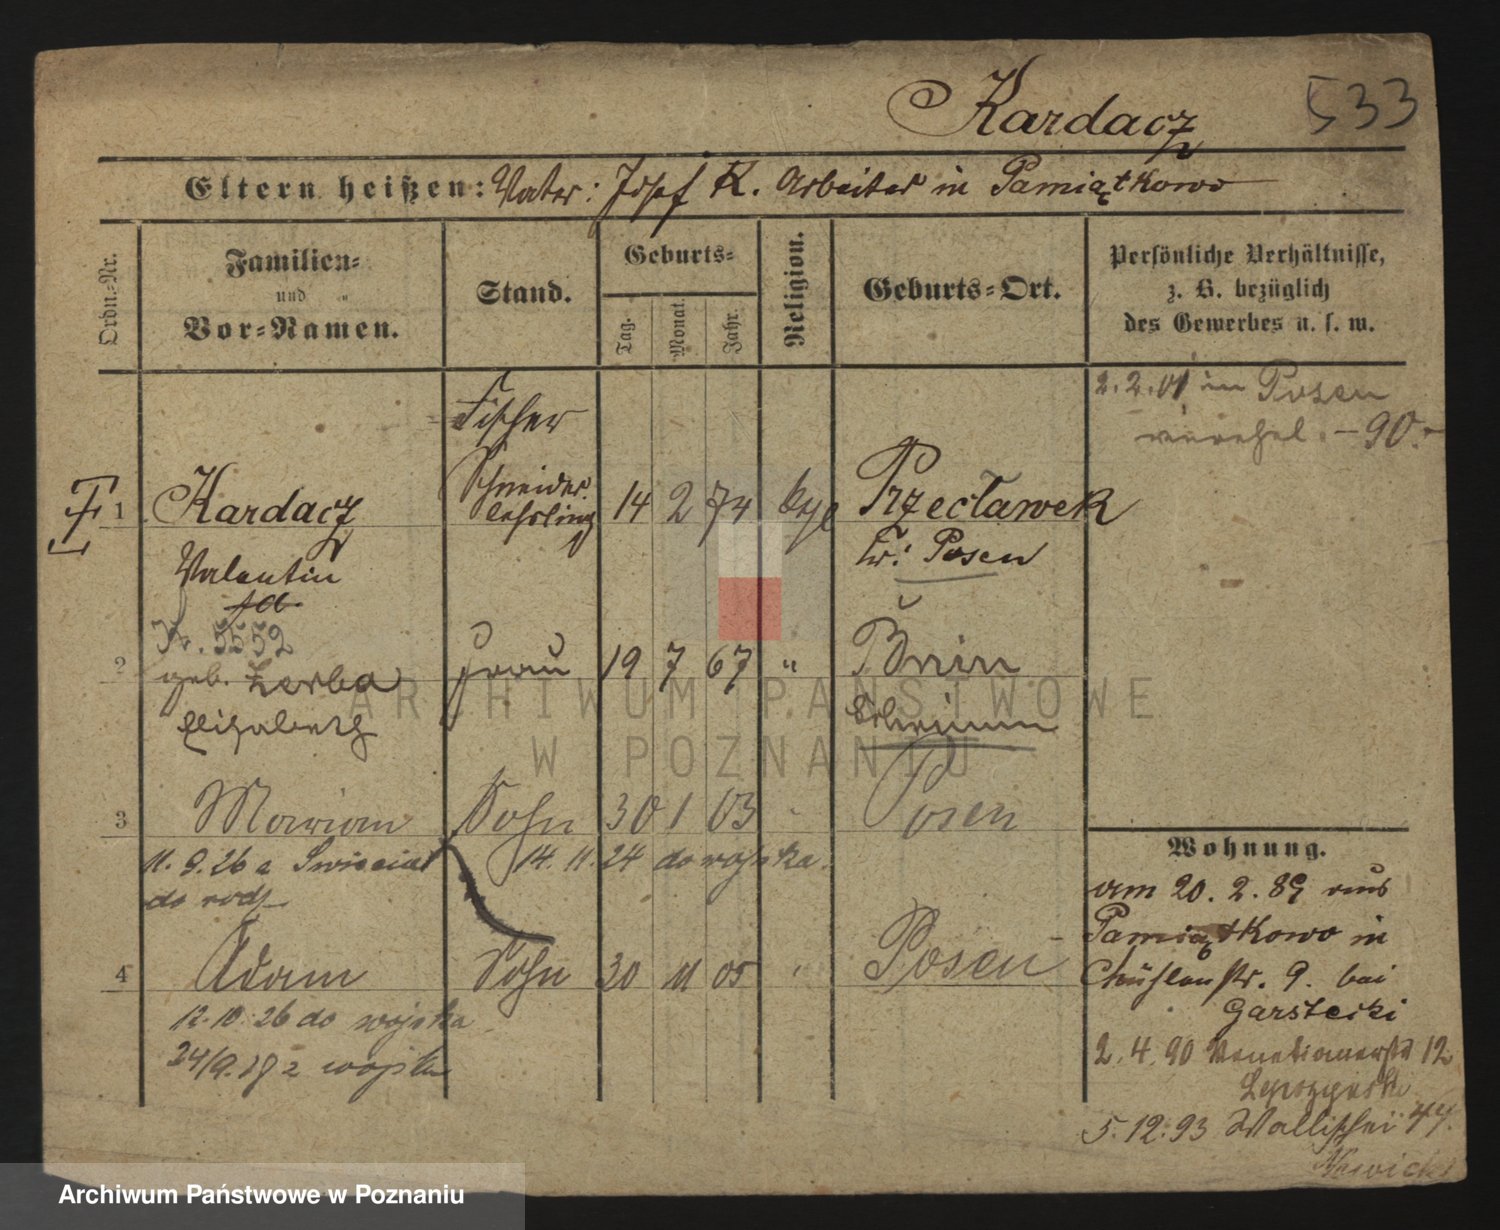 Kardacz
533
Eltern heißen: Vater: Josef K. Arbeiter in Pamiątkowo
Ordn.-Nr.
Familien-
und
Vor-Namen.
Stand.
Geburts-
Tag.
Monat.
Jahr.
Religion.
Geburts-Ort.
Persönliche Verhältnisse,
z. B. bezüglich
des Gewerbes u. s. w.
2.2.01 in Posen
verehel. -90.-
Fischer
Schneider
lehrling
1 Kardacz 14 2 74 Przecławek
Valentin
Kr. Posen
Nr. 5552
2 geb. Zerba Frau 19 7 67 " Bnin
Elisabeth
Schrimm
3 Marian Sohn 30 1 03 Posen
11.9.26 a Swiecia
do rodz
14.11.24 do wojska
4 Adam Sohn 30 11 05 " Posen
12.10.26 do wojska
24/9.28 z wojska
Wohnung.
am 20.2.89 aus
Pamiątkowo in
Mühlenstr. 9. bei
Garstecki
2.4.90 Venetianerstr 12
5.12.93 Wallischei 44.
Nowicki
ARCHIWUM PAŃSTWOWE
W POZNANIU
Archiwum Państwowe w Poznaniu